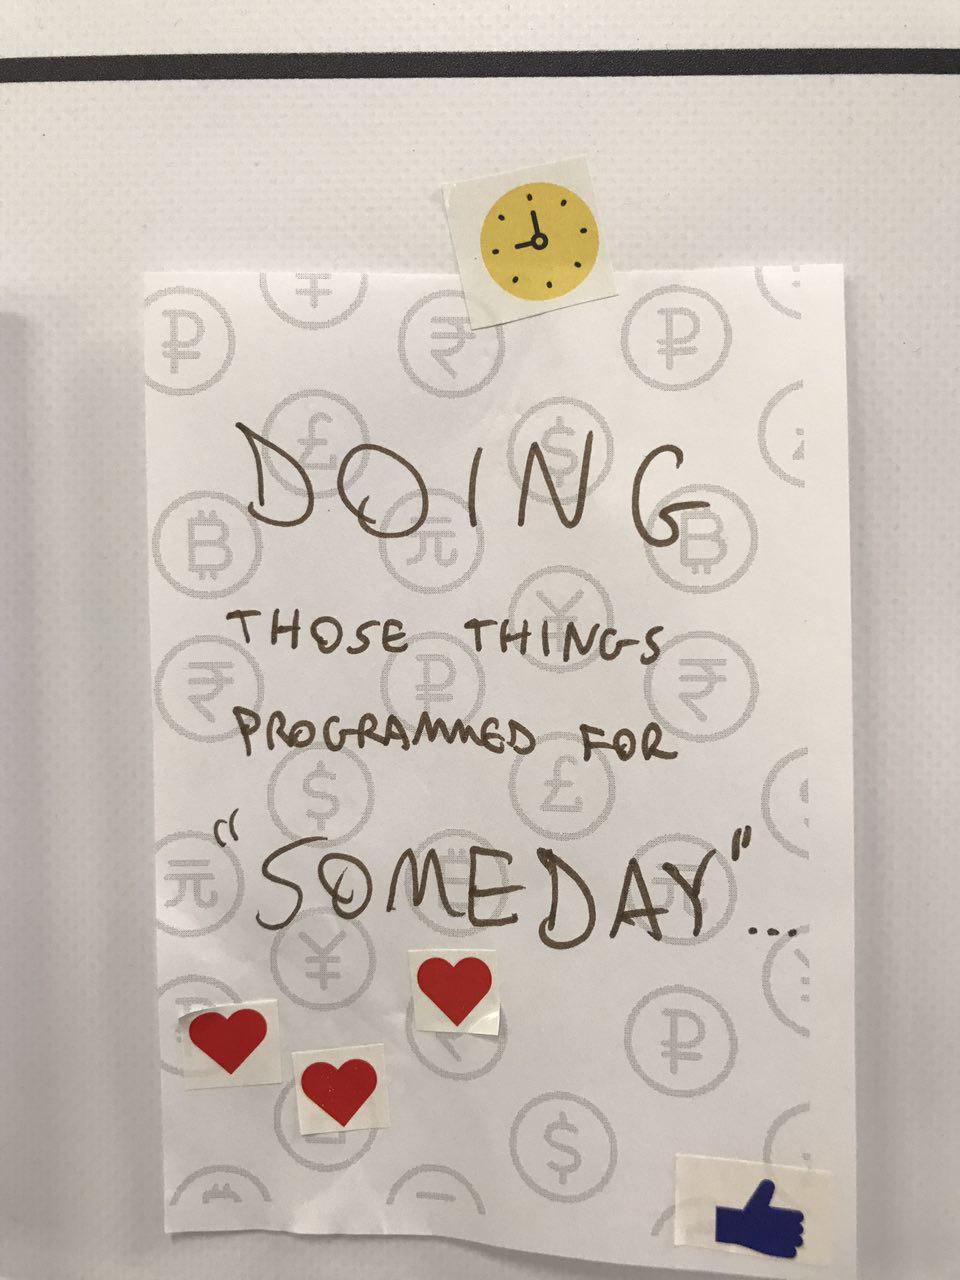 DOING
THOSE THINGS
PROGRAMMED FOR
"SOMEDAY"...